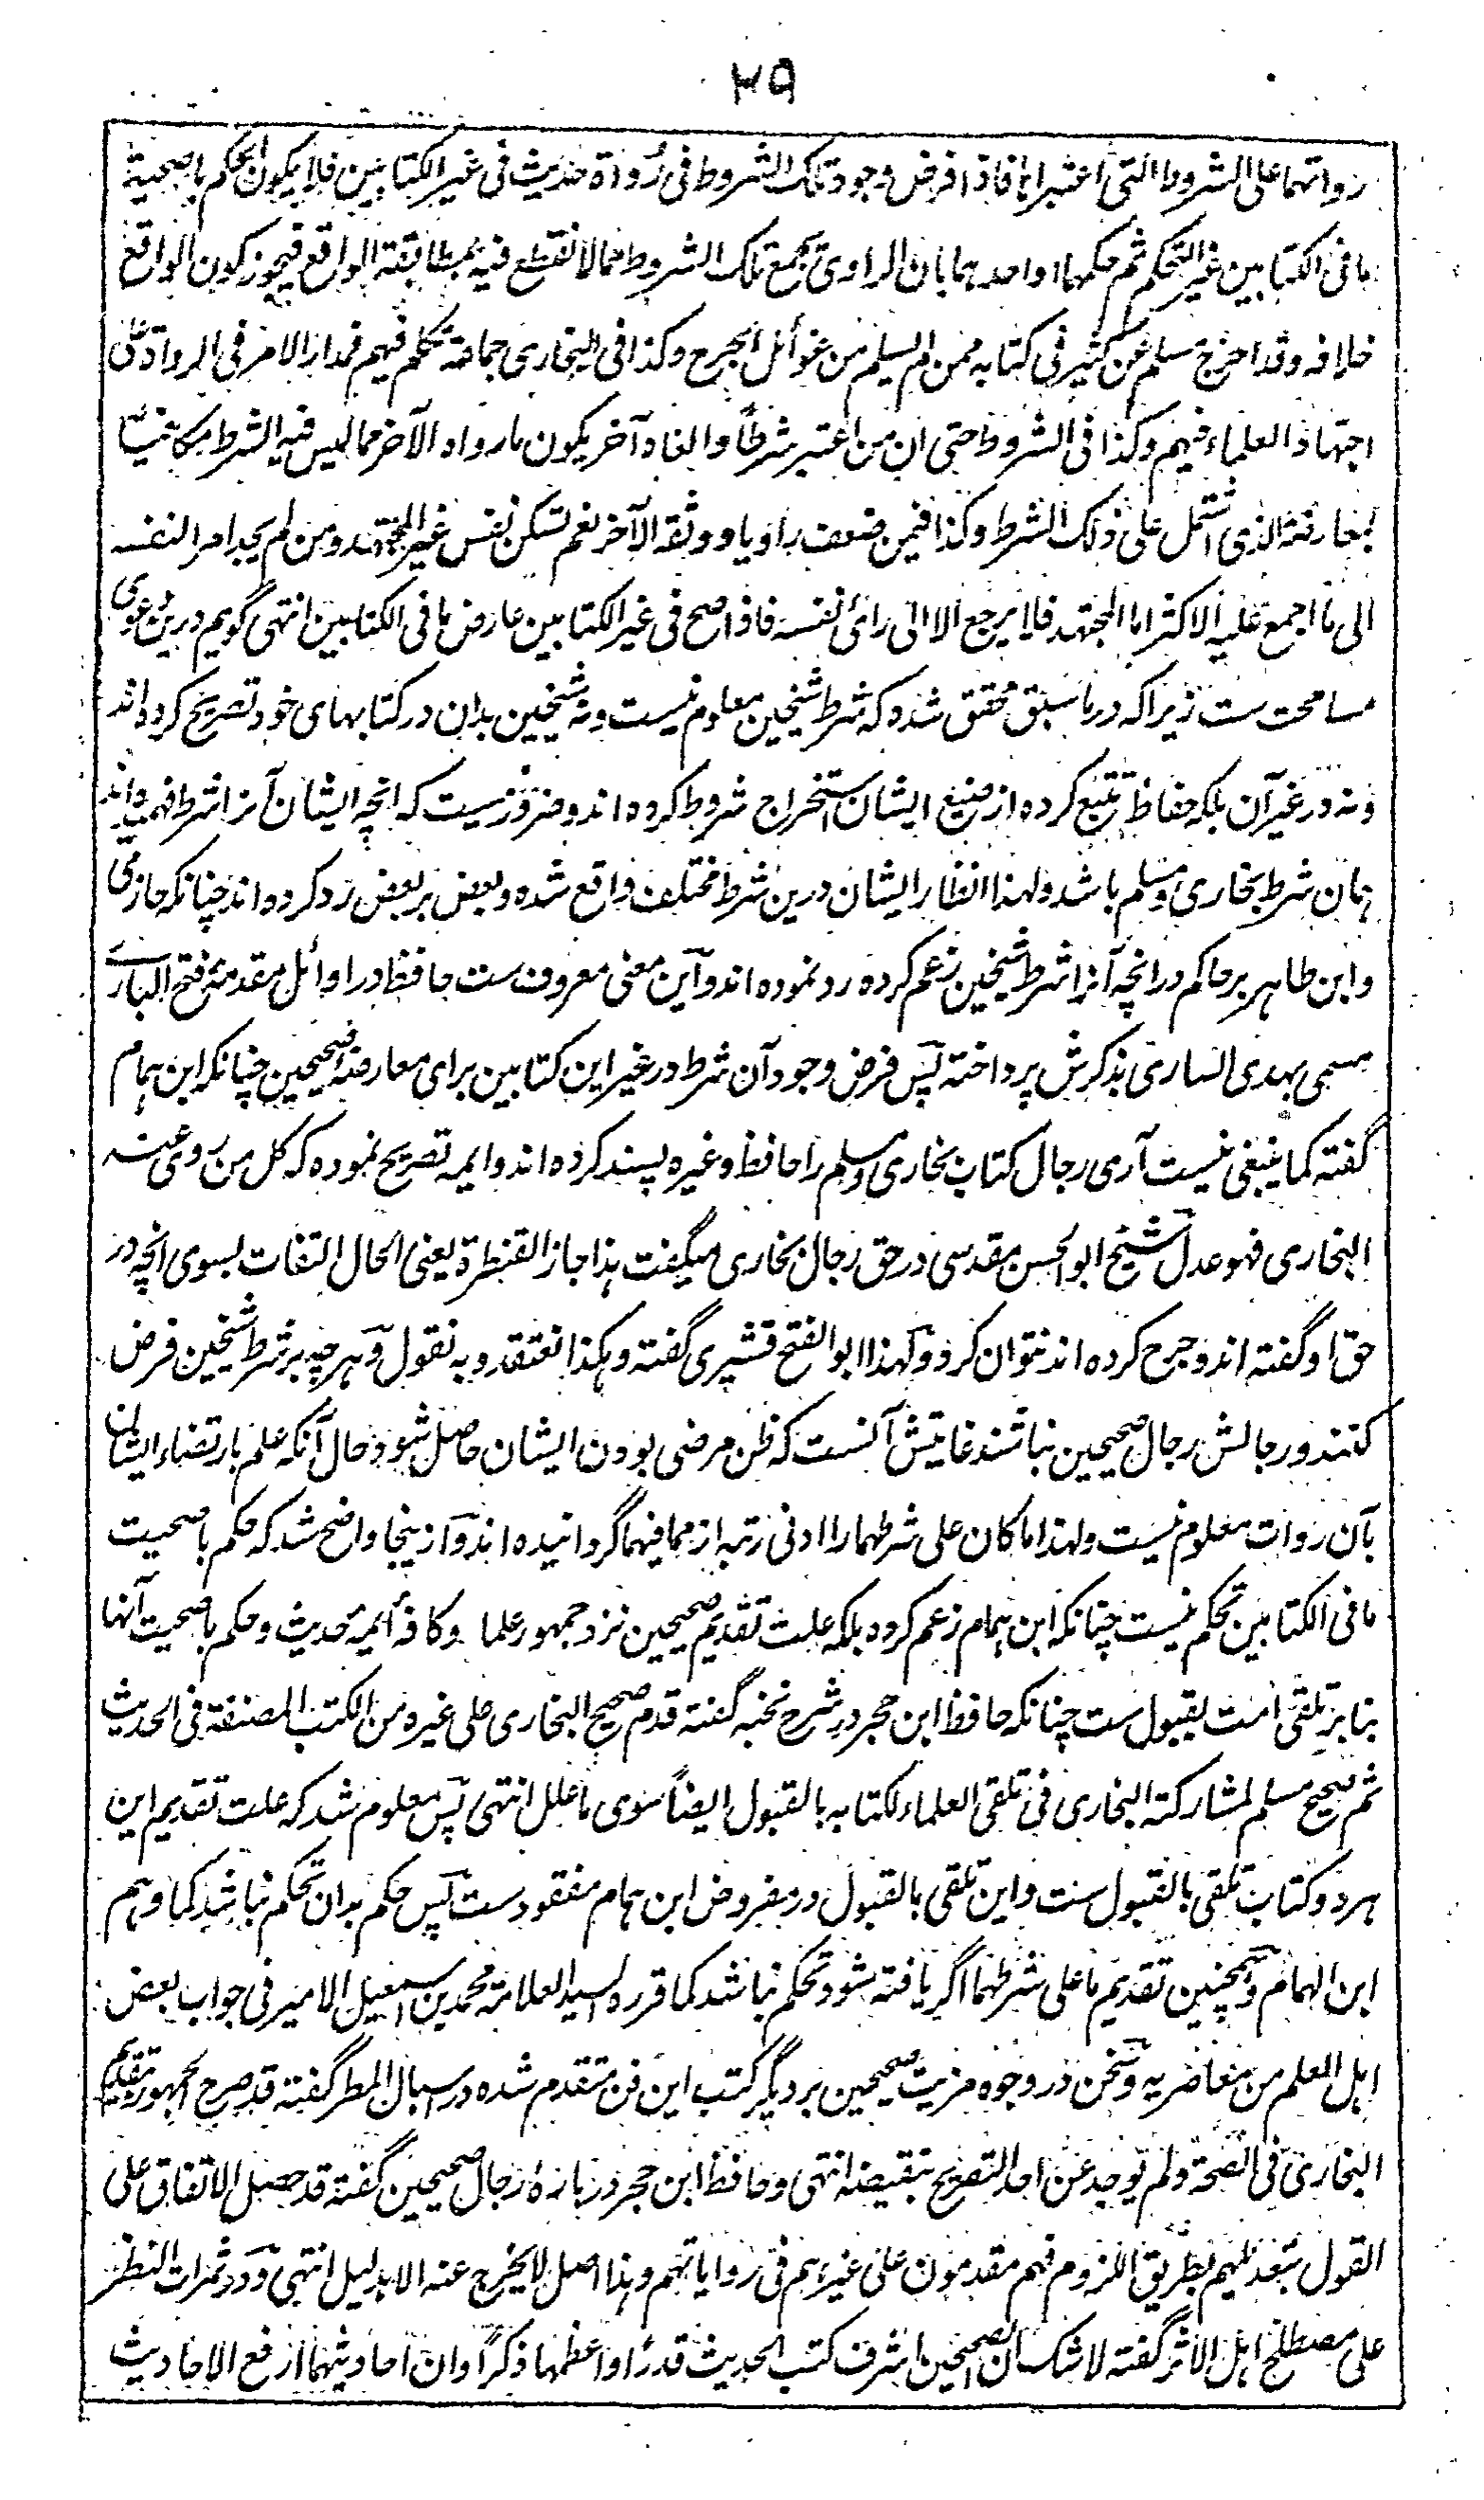 ۳۹
رواتهما على الشروط التى اعتبراها فاذا فرض وجود تلك الشروط فى رواة حديث فى غير الكتابين فلا يكون الحكم باصحية
ما فى الكتابين غير التحكم ثم حكمهما او احدهما بان الراوى تجمع تلك الشروط مما لا نقطع فيه بمطابقة الواقع فيجوز كون الواقع
خلافه وقد اخرج مسلم عن كثير فى كتابه ممن لم يسلم من غوائل الجرح وكذا فى البخارى جماعة تكلم فيهم فمدار الامر فى الرواة على
اجتهاد العلماء فيهم وكذا فى الشروط حتى ان من اعتبر شرطاً والغاه آخر يكون ما رواه الآخر مما ليس فيه الشرط مكافيا
لمعارضة الذى اشتمل على ذلك الشرط وكذا فيمن ضعف راويا ووثقه الآخر نعم تسكن نفس غير المجتهد ومن لم يخبر امر النفسه
الى ما اجمع عليه الاكثر اما المجتهد فلا يرجع الا الى رائ نفسه فاذا صح فى غير الكتابين عارض ما فى الكتابين انتهى گويم درين دعوى
مسامحت ست زيراكه در ما سبق محقق شده كه شرط شيخين معلوم نيست ونه شيخين بدان در كتابهاى خود تصريح كرده اند
ونه در غير آن بلكه حفاظ تتبع كرده از صنيع ايشان استخراج شروط كرده اند وضرور نيست كه انچه ايشان آنرا شرط فهميده اند
همان شرط بخارى ومسلم باشد ولهذا انظار ايشان درين شرط مختلف واقع شده وبعض بر بعض رد كرده اند چنانكه حازمى
وابن طاهر بر حاكم در انچه آنرا شرط شيخين زعم كرده رد نموده اند واين معنى معروف ست حافظ در اوائل مقدمۀ فتح البارى
مسمى بهدى السارى بذكرش پرداخته پس فرض وجود آن شرط در غير اين كتابين براى معارضۀ صحيحين چنانكه ابن همام
گفته كما ينبغى نيست آرى رجال كتاب بخارى ومسلم را حافظ وغيره پسند كرده اند وايمه تصريح نموده كه كل من روى عنه
البخارى فهو عدل شيخ ابو الحسن مقدسى در حق رجال بخارى ميگفت هذا جاز القنطرة يعنى الحال التفات بسوى انچه در
حق او گفته اند وجرح كرده اند نتوان كرد ولهذا ابو الفتح قشيرى گفته وهكذا نعتقد وبه نقول وهر چه بر شرط شيخين فرض
كنند ورجالش رجال صحيحين نباشند غايتش آنست كه ظن مرضى بودن ايشان حاصل شود وحال آنكه علم بارتضاء ايشان
بآن روات معلوم نيست ولهذا ما كان على شرطهما را ادنى رتبه از مما فيهما گردانيده اند وازينجا واضح شد كه حكم باصحيت
ما فى الكتابين تحكم نيست چنانكه ابن همام زعم كرده بلكه علت تقديم صحيحين نزد جمهور علما وكافۀ ائمۀ حديث وحكم باصحيت آنها
بنابر تلقى امت بقبول ست چنانكه حافظ ابن حجر در شرح نخبه گفته قدم صحيح البخارى على غيره من الكتب المصنفة فى الحديث
ثم صحيح مسلم لمشاركته البخارى فى تلقى العلماء لكتابه بالقبول ايضاً سوى ما علل انتهى پس معلوم شد كه علت تقديم اين
هر دو كتاب تلقى بالقبول ست واين تلقى بالقبول در مفروض ابن همام مفقود ست پس حكم بدان تحكم نباشد كما وهم
ابن الهمام وهمچنين تقديم ما على شرطهما اگر يافته شود تحكم نباشد كما قرره السيد العلامة محمد بن اسمعيل الامير فى جواب بعض
اهل العلم من معاصريه وسخن در وجوه مزيت صحيحين بر ديگر كتب اين فن متقدم شده در اسبال المطر گفته قد صرح الجمهور بتقديم
البخارى فى الصحة ولم يوجد عن احد التصريح بنقيضه انتهى وحافظ ابن حجر در بارۀ رجال صحيحين گفته قد حصل الاتفاق على
القول بتعديلهم بطريق اللزوم فهم مقدمون على غيرهم فى رواياتهم وهذا اصل لا يخرج عنه الا بدليل انتهى ودر ثمرات النظر
على مصطلح اهل الاثر گفته لا شك ان الصحيحين اشرف كتب الحديث قدرًا واعظمها ذكرًا وان احاديثهما ارفع الاحاديث